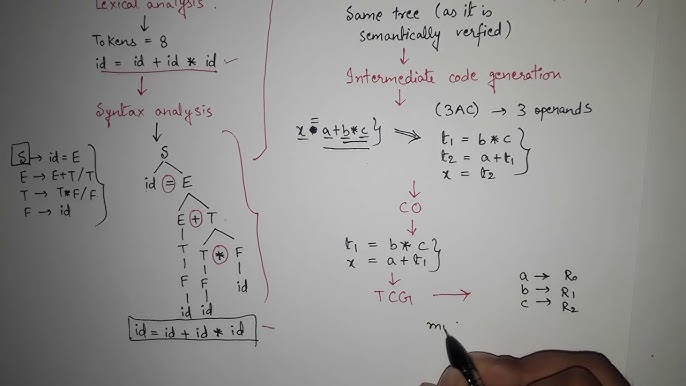 Lexical analysis
Tokens = 8
id = id + id * id
Syntax analysis
S → id = E
E → E+T/T
T → T*F/F
F → id
S
id = E
E + T
T T * F
F F id
id id
id = id + id * id
Same tree (as it is
semantically verfied)
Intermediate code generation
(3AC) → 3 operands
x = a+b*c } ⇒ t₁ = b*c
t₂ = a+t₁
x = t₂
CO
t₁ = b*c
x = a+t₁
TCG →
a → R₀
b → R₁
c → R₂
m